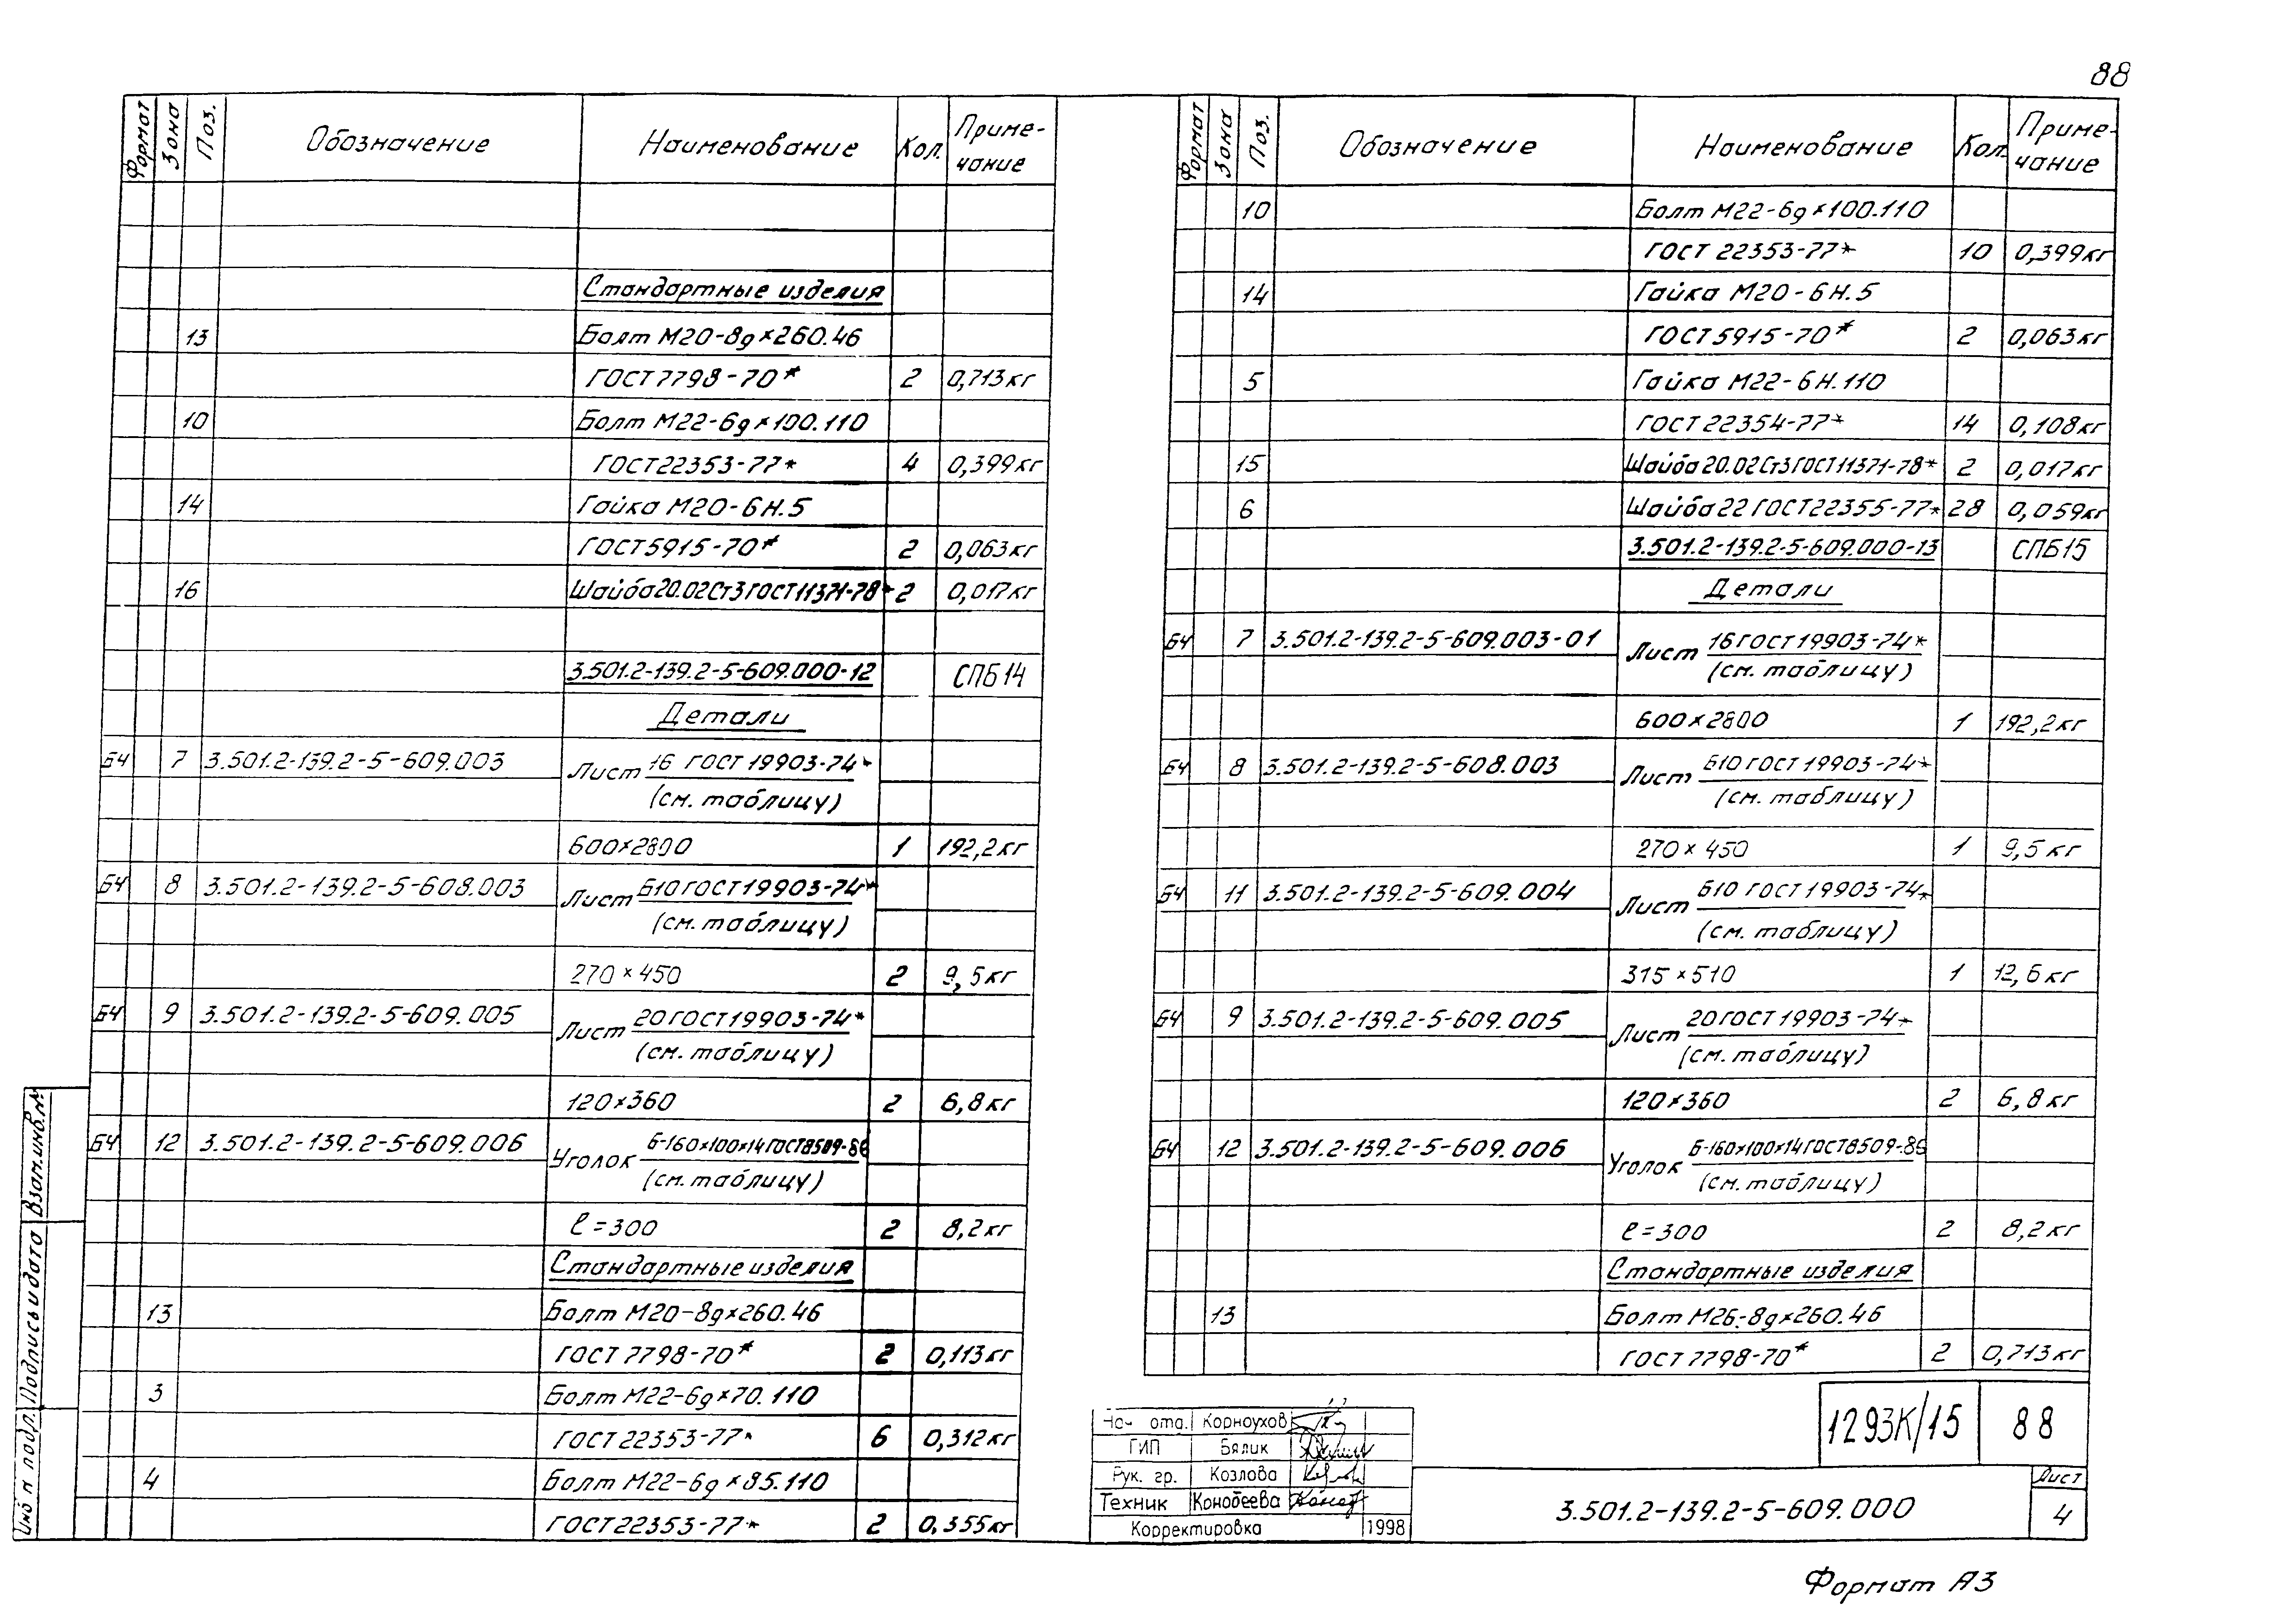 88
Формат Зона Поз. Обозначение Наименование Кол. Приме-
чание
Стандартные изделия
13 Болт М20-8g×260.46
ГОСТ 7798-70* 2 0,713кг
10 Болт М22-6g×100.110
ГОСТ22353-77* 4 0,399кг
14 Гайка М20-6Н.5
ГОСТ5915-70* 2 0,063кг
16 Шайба20.02Ст3ГОСТ11371-78* 2 0,017кг
3.501.2-139.2-5-609.000-12 СПБ14
Детали
БЧ 7 3.501.2-139.2-5-609.003 Лист 16 ГОСТ 19903-74*
(см. таблицу)
600×2800 1 192,2кг
БЧ 8 3.501.2-139.2-5-608.003 Лист Б10ГОСТ19903-74*
(см. таблицу)
270×450 2 9,5кг
БЧ 9 3.501.2-139.2-5-609.005 Лист 20ГОСТ19903-74*
(см. таблицу)
120×360 2 6,8кг
БЧ 12 3.501.2-139.2-5-609.006 Уголок Б-160×100×14ГОСТ8509-86
(см. таблицу)
ℓ=300 2 8,2кг
Стандартные изделия
13 Болт М20-8g×260.46
ГОСТ 7798-70* 2 0,113кг
3 Болт М22-6g×70.110
ГОСТ22353-77* 6 0,312кг
4 Болт М22-6g×85.110
ГОСТ22353-77* 2 0,355кг
Формат Зона Поз. Обозначение Наименование Кол. Приме-
чание
10 Болт М22-6g×100.110
ГОСТ 22353-77* 10 0,399кг
14 Гайка М20-6Н.5
ГОСТ5915-70* 2 0,063кг
5 Гайка М22-6Н.110
ГОСТ 22354-77* 14 0,108кг
15 Шайба20.02Ст3ГОСТ11371-78* 2 0,017кг
6 Шайба22 ГОСТ22355-77* 28 0,059кг
3.501.2-139.2-5-609.000-13 СПБ15
Детали
БЧ 7 3.501.2-139.2-5-609.003-01 Лист 16ГОСТ19903-74*
(см. таблицу)
600×2800 1 192,2кг
БЧ 8 3.501.2-139.2-5-608.003 Лист Б10ГОСТ 19903-74*
(см. таблицу)
270×450 1 9,5кг
БЧ 11 3.501.2-139.2-5-609.004 Лист Б10 ГОСТ19903-74*
(см. таблицу)
315×510 1 12,6кг
БЧ 9 3.501.2-139.2-5-609.005 Лист 20ГОСТ19903-74*
(см. таблицу)
120×360 2 6,8кг
БЧ 12 3.501.2-139.2-5-609.006 Уголок Б-160×100×14ГОСТ8509-86
(см. таблицу)
ℓ=300 2 8,2кг
Стандартные изделия
13 Болт М26-8g×260.46
ГОСТ 7798-70* 2 0,713кг
Взам.инв.№
Подпись и дата
Инв № подл.
1293К/15 88
Нач отд. Корноухов
ГИП Бялик
Рук. гр. Козлова
Техник Конобеева
Корректировка 1998
3.501.2-139.2-5-609.000
Лист
4
Формат А3